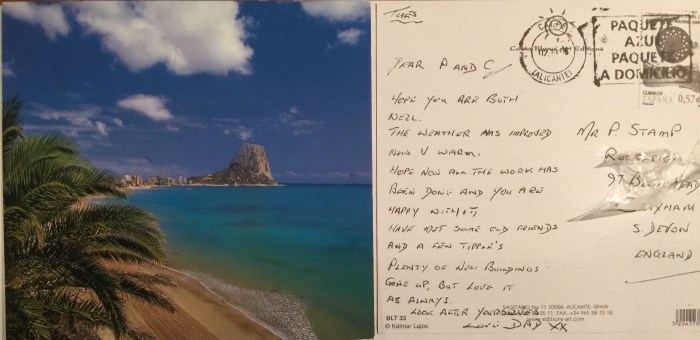 TUES
DEAR P AND C
HOPE YOU ARE BOTH
WELL.
THE WEATHER HAS IMPROVED
NOW V WARM.
HOPE NOW ALL THE WORK HAS
BEEN DONE AND YOU ARE
HAPPY WITH IT,
HAVE MET SOME OLD FRIENDS
AND A FEW TIPPLE'S
PLENTY OF NEW BUILDINGS
GONE UP, BUT LOVE IT
AS ALWAYS.
LOOK AFTER YOURSELVES
LOVE DAD XX
Costa Blanca Art Editions
(ALICANTE)
PAQUETE
AZUL
PAQUETE
A DOMICILIO
CORREOS
ESPAÑA 0,57€
MR P STAMP
97
BRIXHAM
S. DEVON
ENGLAND
BLT 33
© Kalmar Lajos
SAGITARIO No 11, 03006 ALICANTE-SPAIN
FAX. +34 965 98 72 18
www.editions-art.com